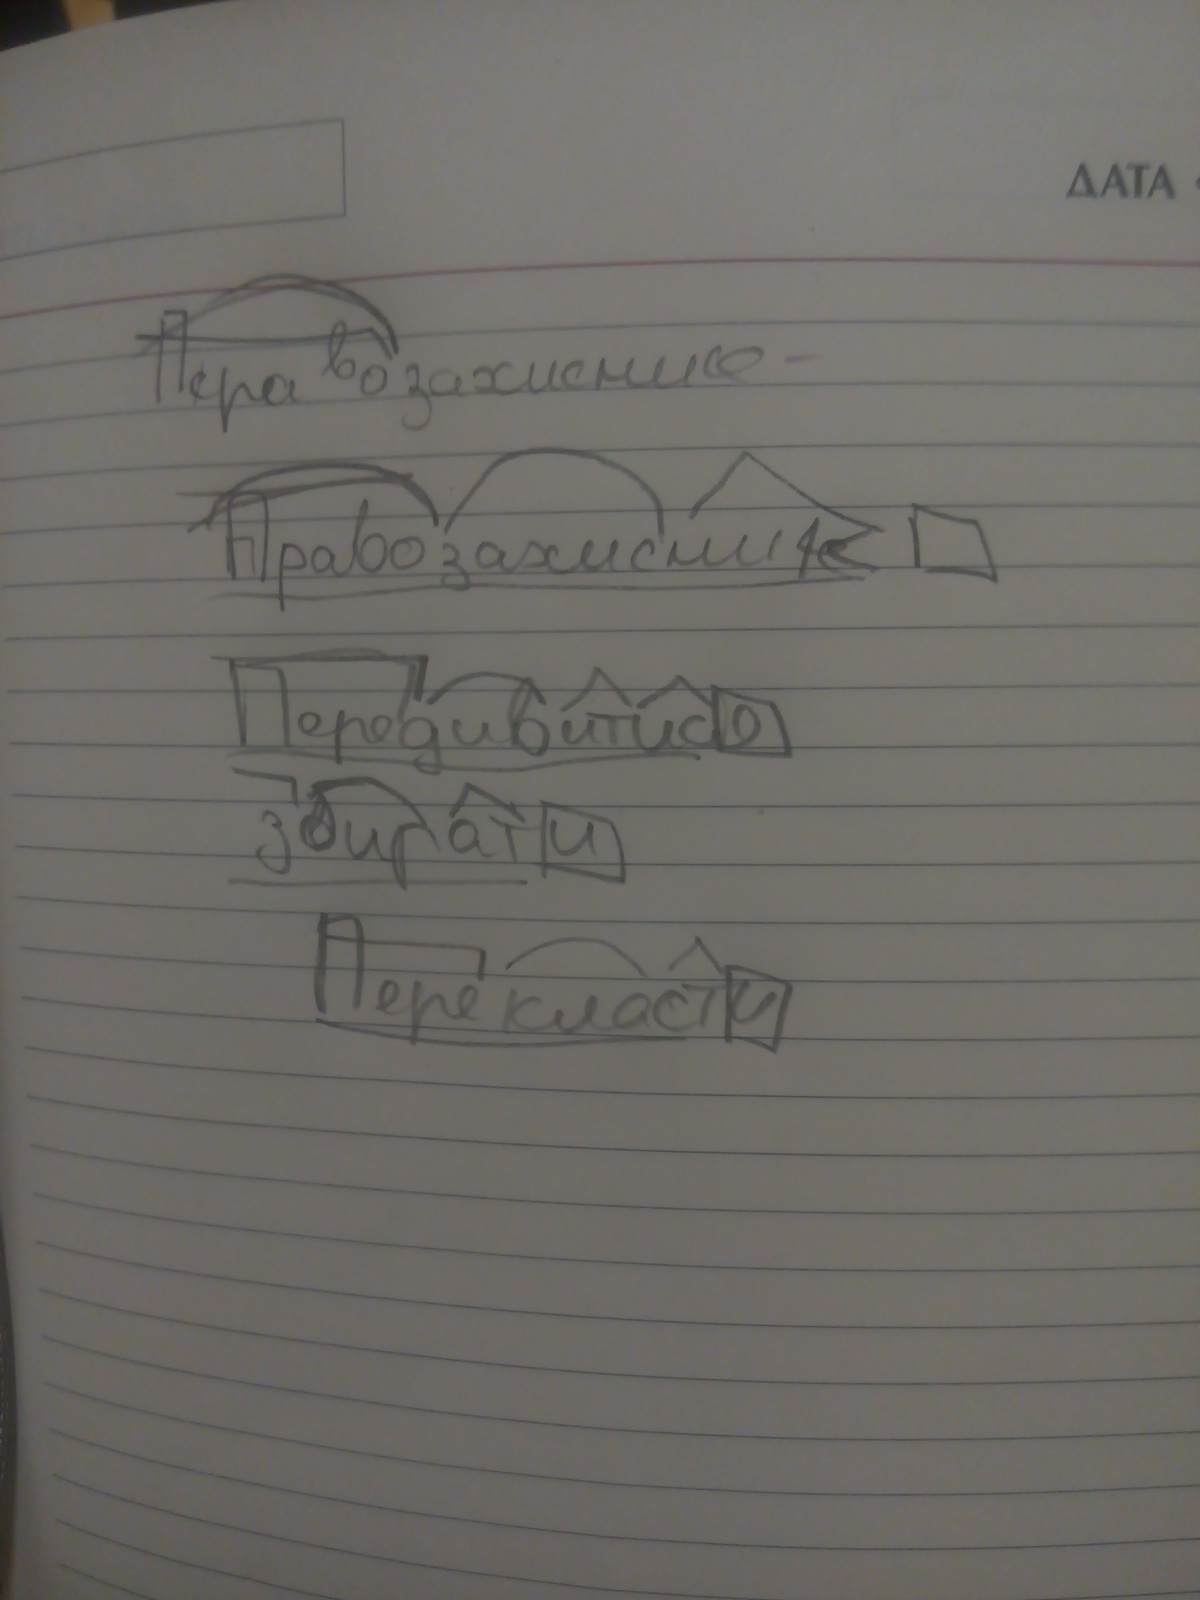 ДАТА
Перавозахисник -
Правозахисник
Передивитися
збирати
Перекласти